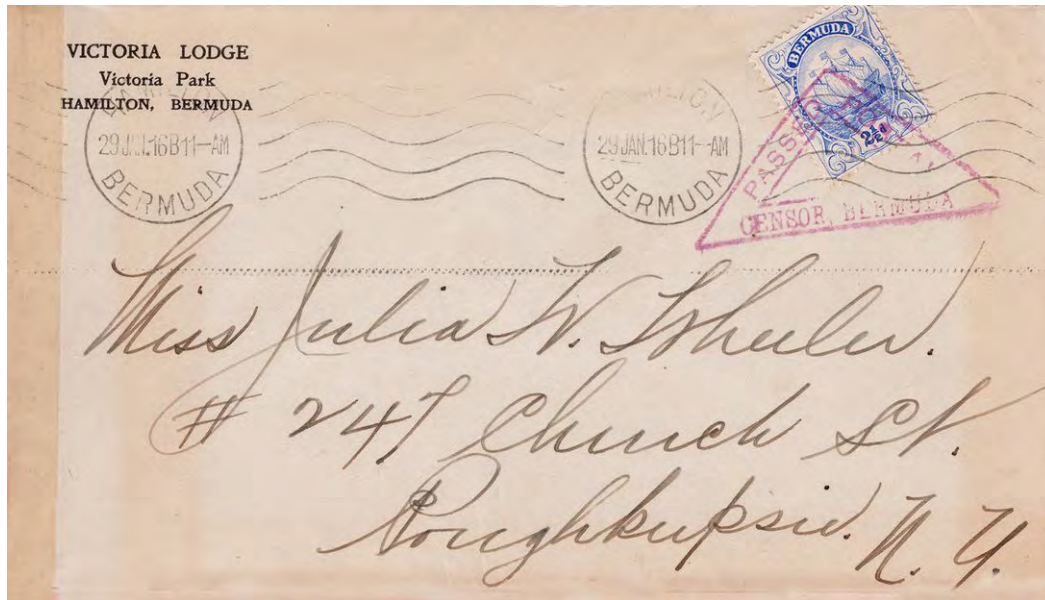 VICTORIA LODGE
Victoria Park
HAMILTON, BERMUDA
HAMILTON
29 JAN.16B11-AM
BERMUDA
HAMILTON
29 JAN.16B11-AM
BERMUDA
BERMUDA
2½d
PASSED
CENSOR, BERMUDA
Miss Julia W. Wheeler.
# 247 Church St.
Poughkeepsie. N. Y.